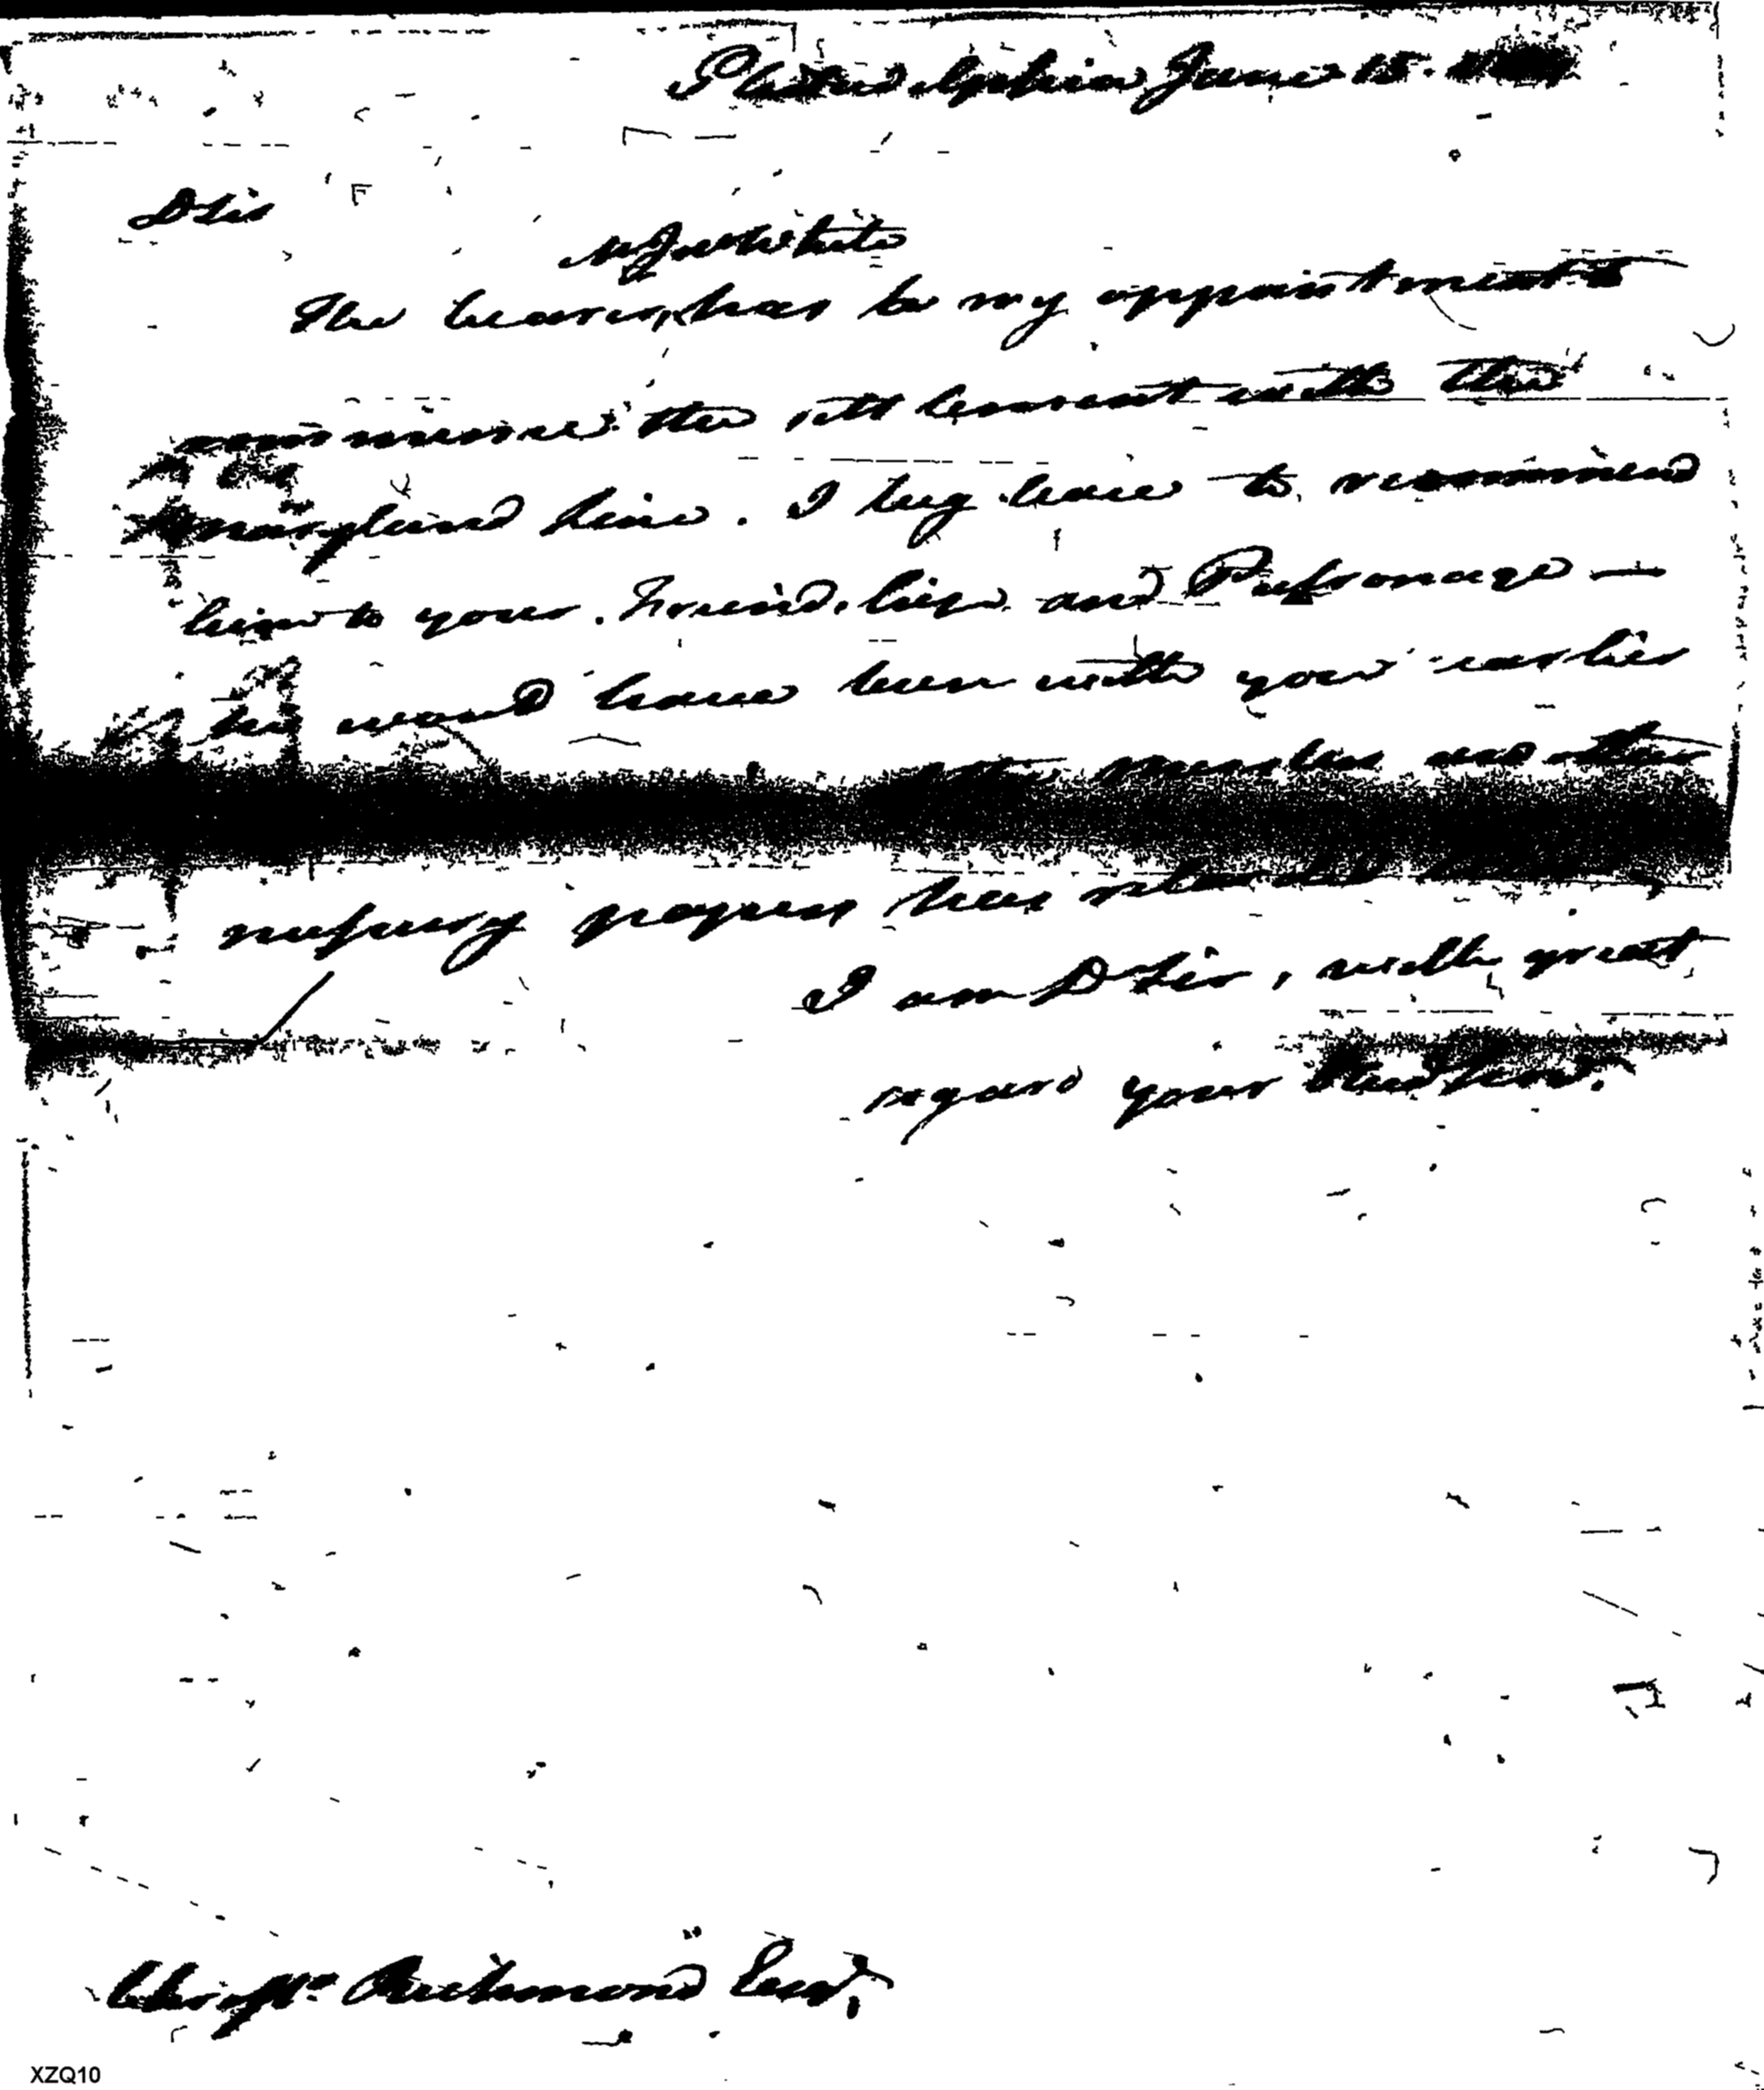 Philadelphia June 15.
D Sir
Mr Jno White
The bearer, has by my appointment
commence the settlement with the
Maryland line. I beg leave to recommend
him to your Friendship and Patronage —
he would have been with you earlier
the muster and other
necessary papers, has retarded
I am D Sir, with great
regard your Obed Serv.
Christr. Richmond Esqr.
XZQ10